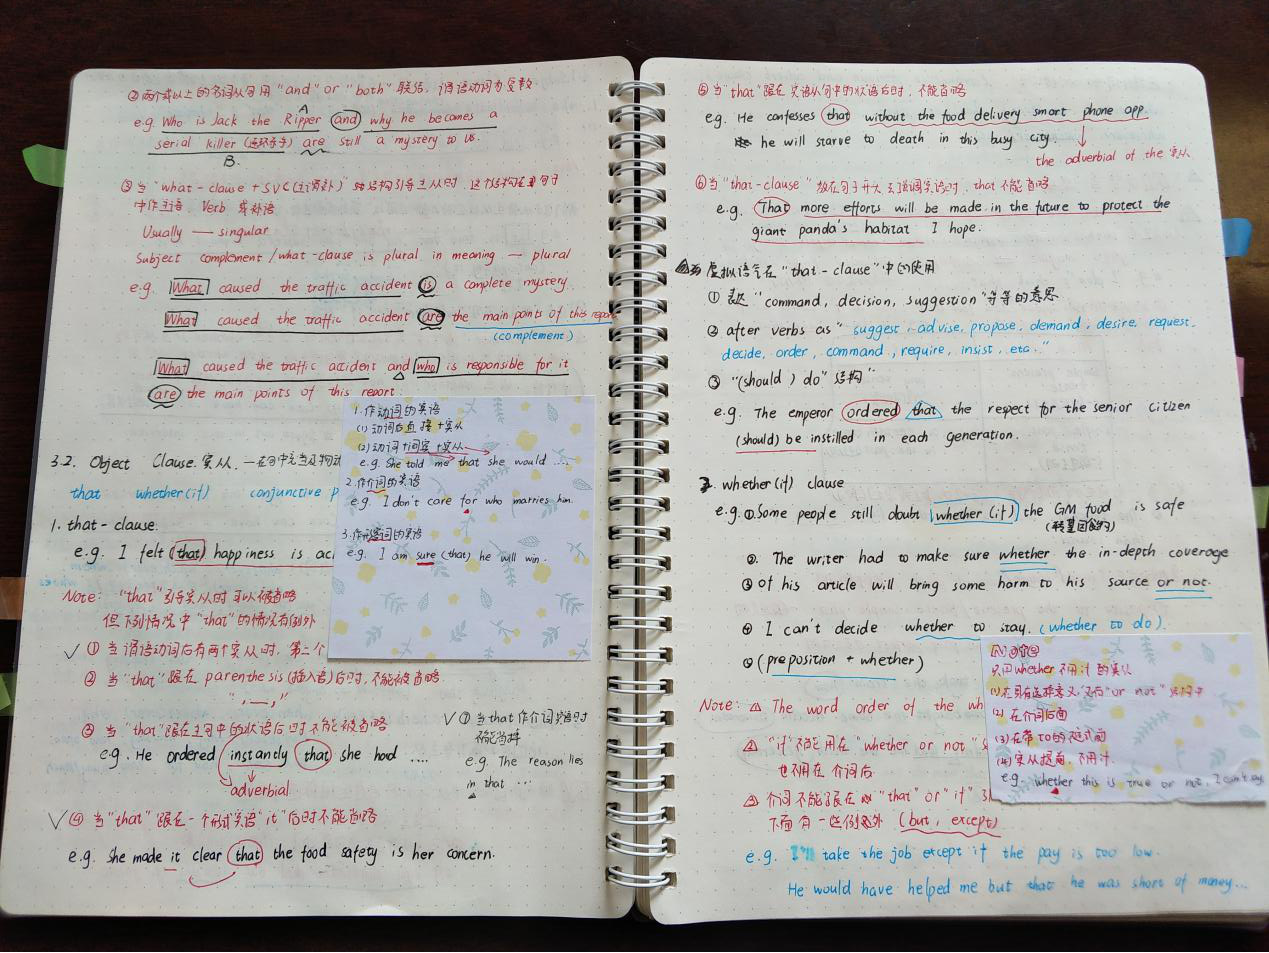 ②两个或以上的名词从句用 "and" or "both" 联结，谓语动词为复数
A
e.g. Who is Jack the Ripper and why he becomes a
serial killer (连环杀手) are still a mystery to us.
B.
③ 当 "what-clause + SVC(主谓补)" 结构引导主从时，这个结构在句子
中作主语、Verb 或补语
Usually — singular
Subject complement / what-clause is plural in meaning — plural
e.g. What caused the traffic accident is a complete mystery.
What caused the traffic accident are the main points of this report
(complement)
What caused the traffic accident and who is responsible for it
are the main points of this report.
3.2. Object Clause. 宾从
that whether(if) conjunctive p
1. that-clause.
e.g. I felt (that) happiness is ac
Note: "that"引导宾从时可以被省略
但下列情况中"that"的情况有例外
① 当谓语动词后有两个宾从时，第二个
② 当 "that" 跟在 parenthesis (插入语) 后时，不能被省略
③ 当 "that" 跟在主句中的状语后时不能被省略
e.g. He ordered instantly that she had ....
adverbial
④ 当 "that" 跟在一个形式宾语 "it" 后时不能省略
e.g. She made it clear that the food safety is her concern.
⑦ 当 that 作介词宾语时
不能省掉
e.g. The reason lies
in that ...
1. 作动词的宾语
(1) 动词后直接+宾从
(2) 动词+间宾+宾从
e.g. She told me that she would ....
2. 作介词的宾语
e.g. I don't care for who marries him.
3. 作形容词的宾语
e.g. I am sure (that) he will win.
⑤ 当 "that" 跟在宾语从句中的状语后时，不能省略
e.g. He confesses that without the food delivery smart phone app.
he will starve to death in this busy city.
the adverbial of the 宾从
⑥ 当 "that-clause" 放在句子开头去强调宾语时，that 不能省略
e.g. That more efforts will be made in the future to protect the
giant panda's habitat I hope.
虚拟语气在 "that-clause" 中的使用
① 表 "command, decision, suggestion" 等等的意思
② after verbs as " suggest, advise, propose, demand, desire, request,
decide, order, command, require, insist, etc."
③ "(should) do" 结构"
e.g. The emperor ordered that the respect for the senior citizen
(should) be instilled in each generation.
2. whether(if) clause
e.g. ①. Some people still doubt whether (if) the GM food is safe
(转基因食物)
②. The writer had to make sure whether the in-depth coverage
③ of his article will bring some harm to his source or not.
④ I can't decide whether to stay. (whether to do).
⑤ (preposition + whether)
Note: △ The word order of the wh
"if" 不能用在 "whether or not"
也不用在 介词后
介词不能跟在 "that" or "if"
下面有一些例外 (but, except)
e.g. I'll take the job except if the pay is too low.
He would have helped me but that he was short of money...
只用whether 不用 if 的宾从
"or not"
(2) 在介词后面
(3) 在带 to 的不定式前
(4) 宾从提前，不用 if.
e.g. whether this is true or not, I can't say